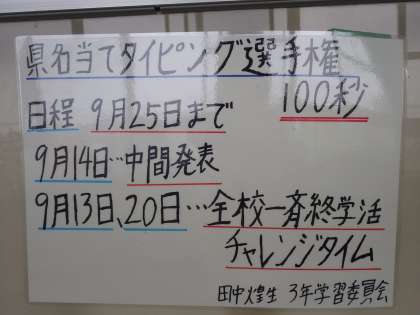 県名当てタイピング選手権
100秒
日程 9月25日まで
9月14日…中間発表
9月13日、20日…全校一斉終学活
チャレンジタイム
田中煌生 3年学習委員会